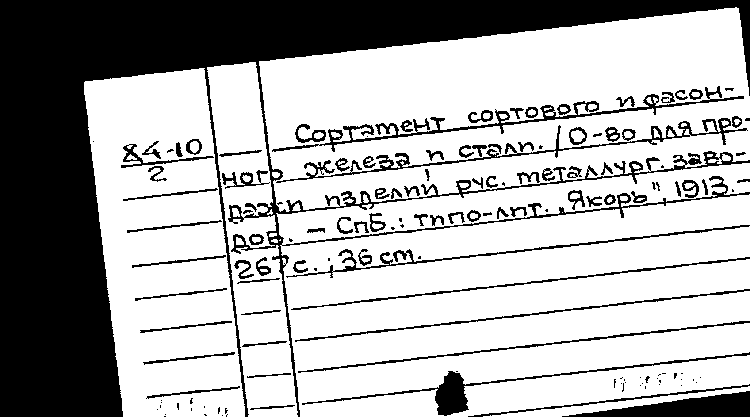 84-10
2
Сортамент сортового и фасон-
ного железа и стали. / О-во для про-
дажи изделий рус. металлург. заво-
дов. — СПб.: типо-лит. „Якорь", 1913. —
267 с. ; 36 см.